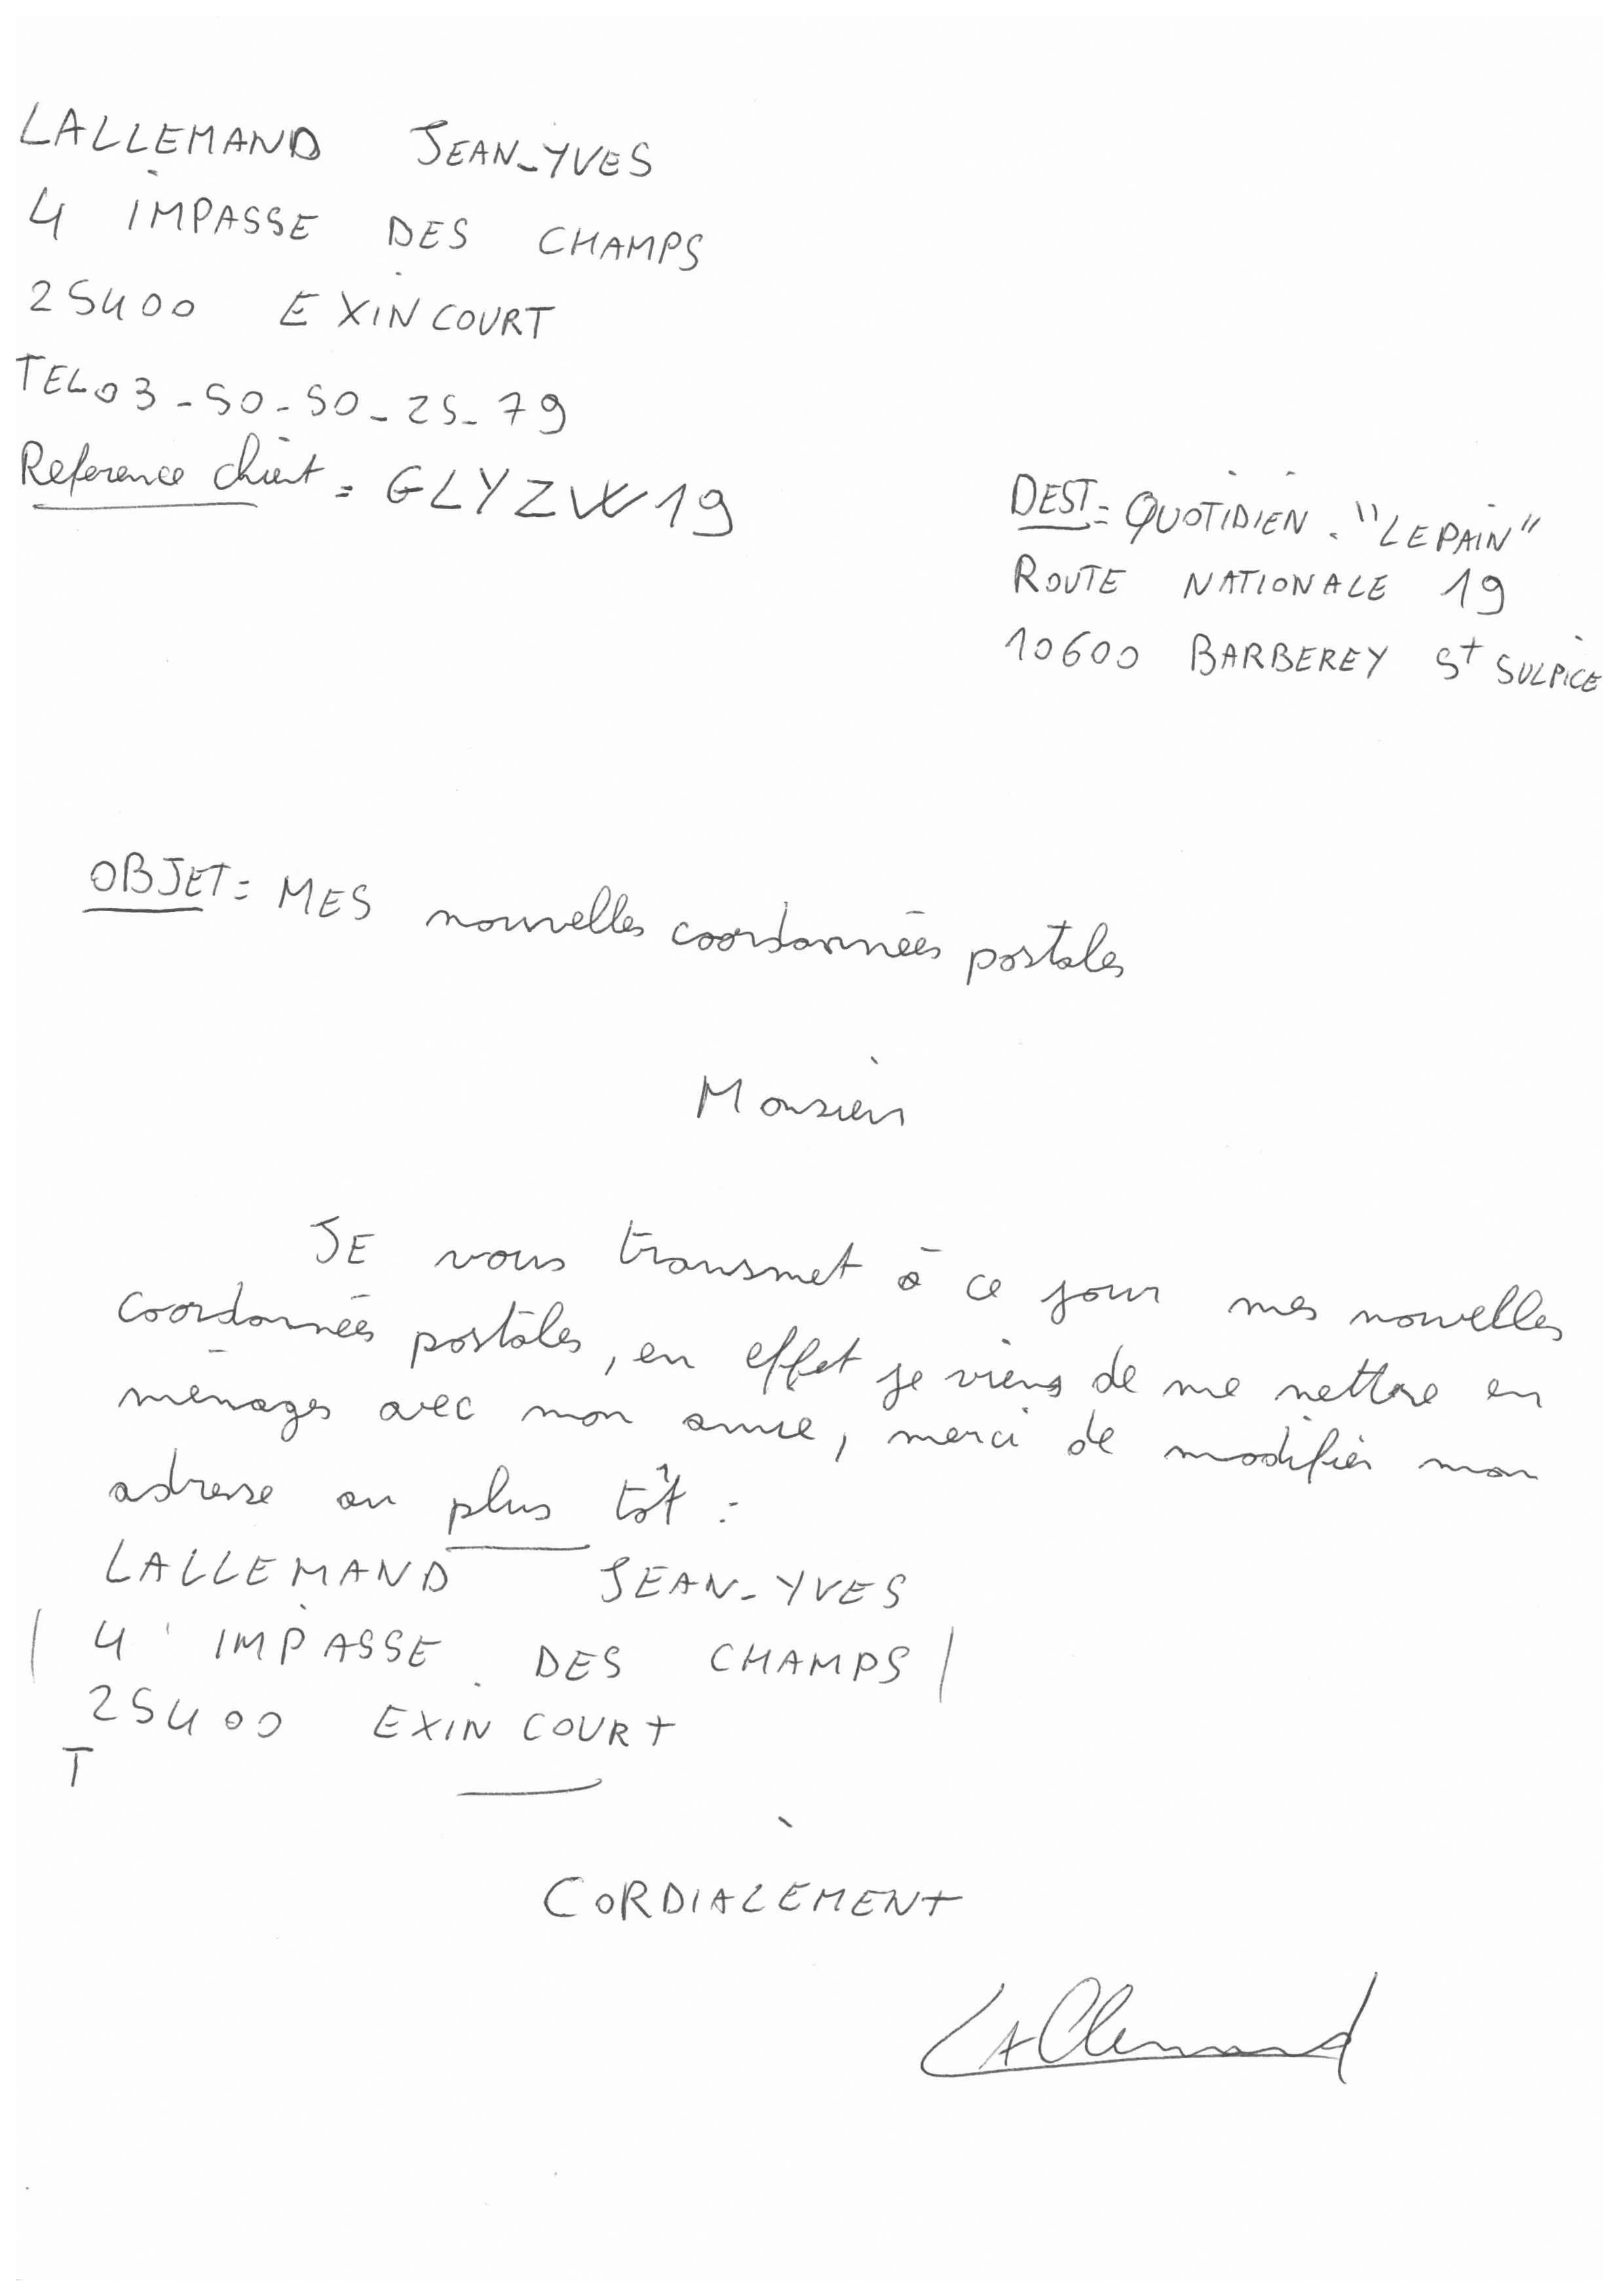 LALLEMAND JEAN-YVES
4 IMPASSE DES CHAMPS
25400 EXINCOURT
TEL 03-50-50-25-79
Reference client = GLYZW19
DEST = QUOTIDIEN. "LE PAIN"
ROUTE NATIONALE 19
10600 BARBEREY St SULPICE
OBJET = MES nouvelles coordonnées postales
Monsieur
JE vous transmet à ce jour mes nouvelles
coordonnées postales, en effet je viens de me mettre en
ménages avec mon amie, merci de modifier mon
adresse au plus tôt :
LALLEMAND JEAN-YVES
4 IMPASSE DES CHAMPS
25400 EXINCOURT
T
CORDIALEMENT
LAllemand